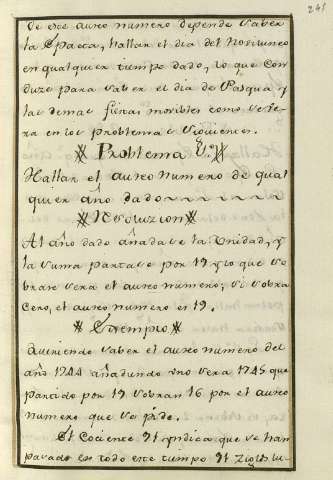 241
de ese aureo numero depende saber
la Epacta, hallar el dia del Novilunio
en qualquier tiempo dado, lo que con
duze para saber el dia de Pasqua, y
las demas fiestas movibles como se ve
ra en los problemas siguientes.
Problema V.
Hallar el aureo numero de qual
quier año dado
Resoluzion
Al año dado añadase la Unidad, y
la suma partase por 19 y lo que so
brare sera el aureo numero; si sobra
cero, el aureo numero es 19.
Exemplo
Queriendo saber el aureo numero del
año 1744 añadiendo uno sera 1745 que
partido por 19 sobran 16 por el aureo
numero que se pide.
El Cociente 91 yndica que se han
pasado en todo este tiempo 91 Ziclos lu-